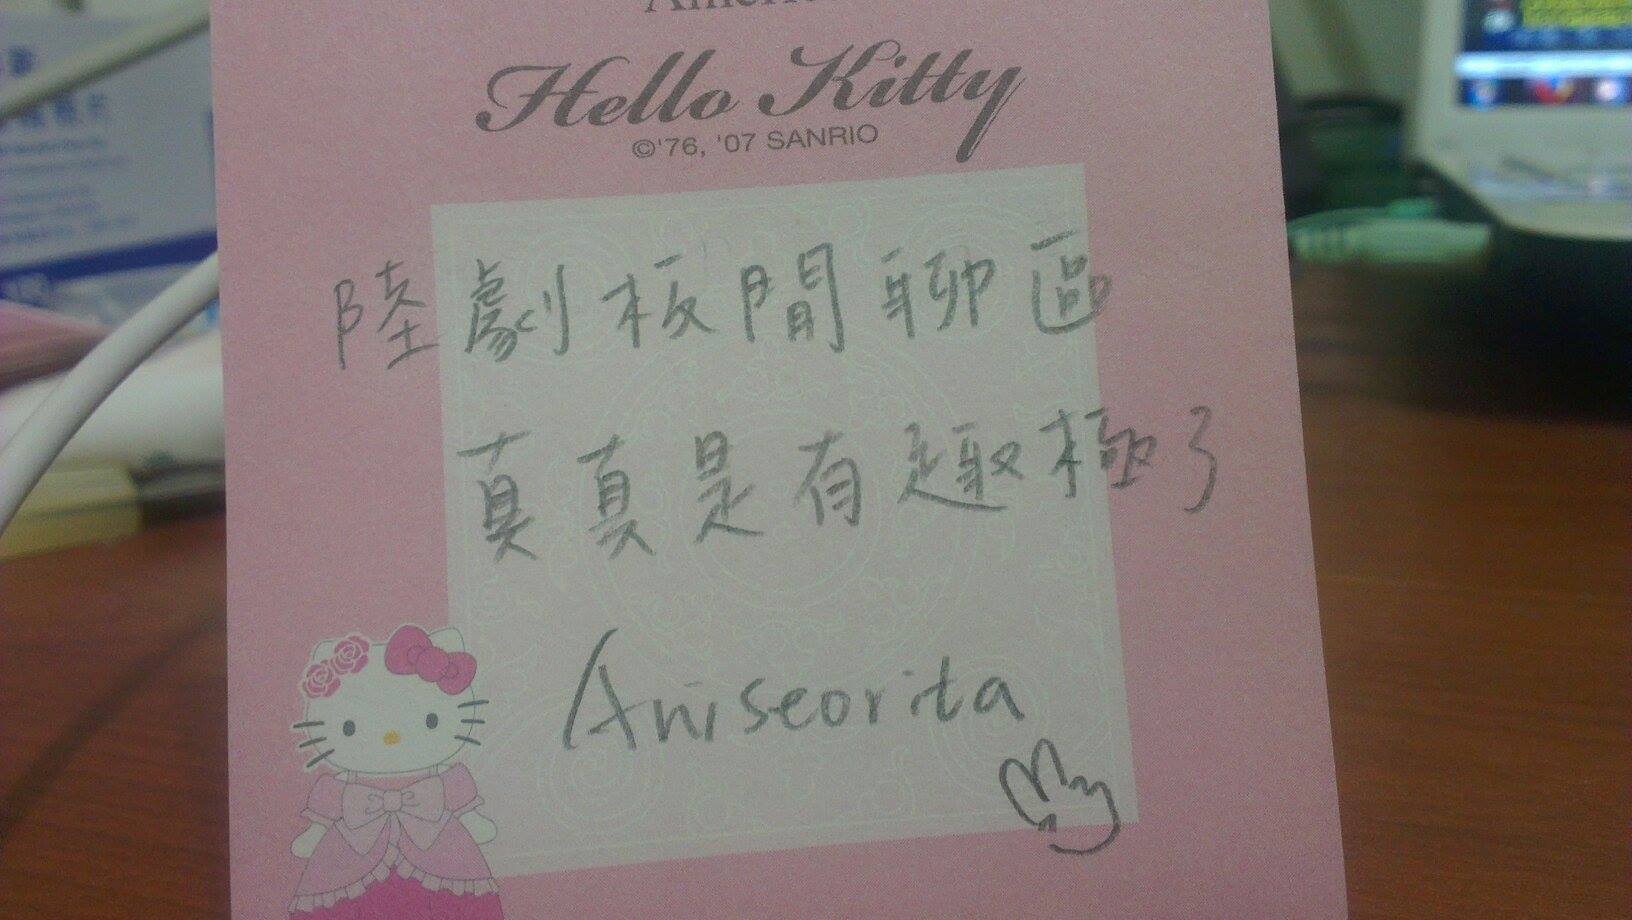 Hello Kitty
©'76, '07 SANRIO
陸劇板閒聊區
真真是有趣極了
Aniseorita